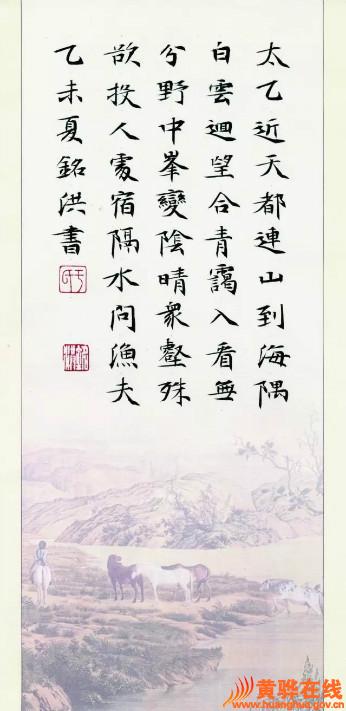 太乙近天都連山到海隅
白雲迴望合青靄入看無
分野中峯變陰晴衆壑殊
欲投人處宿隔水問漁夫
乙未夏銘洪書
黄骅在线
www.huanghua.gov.cn